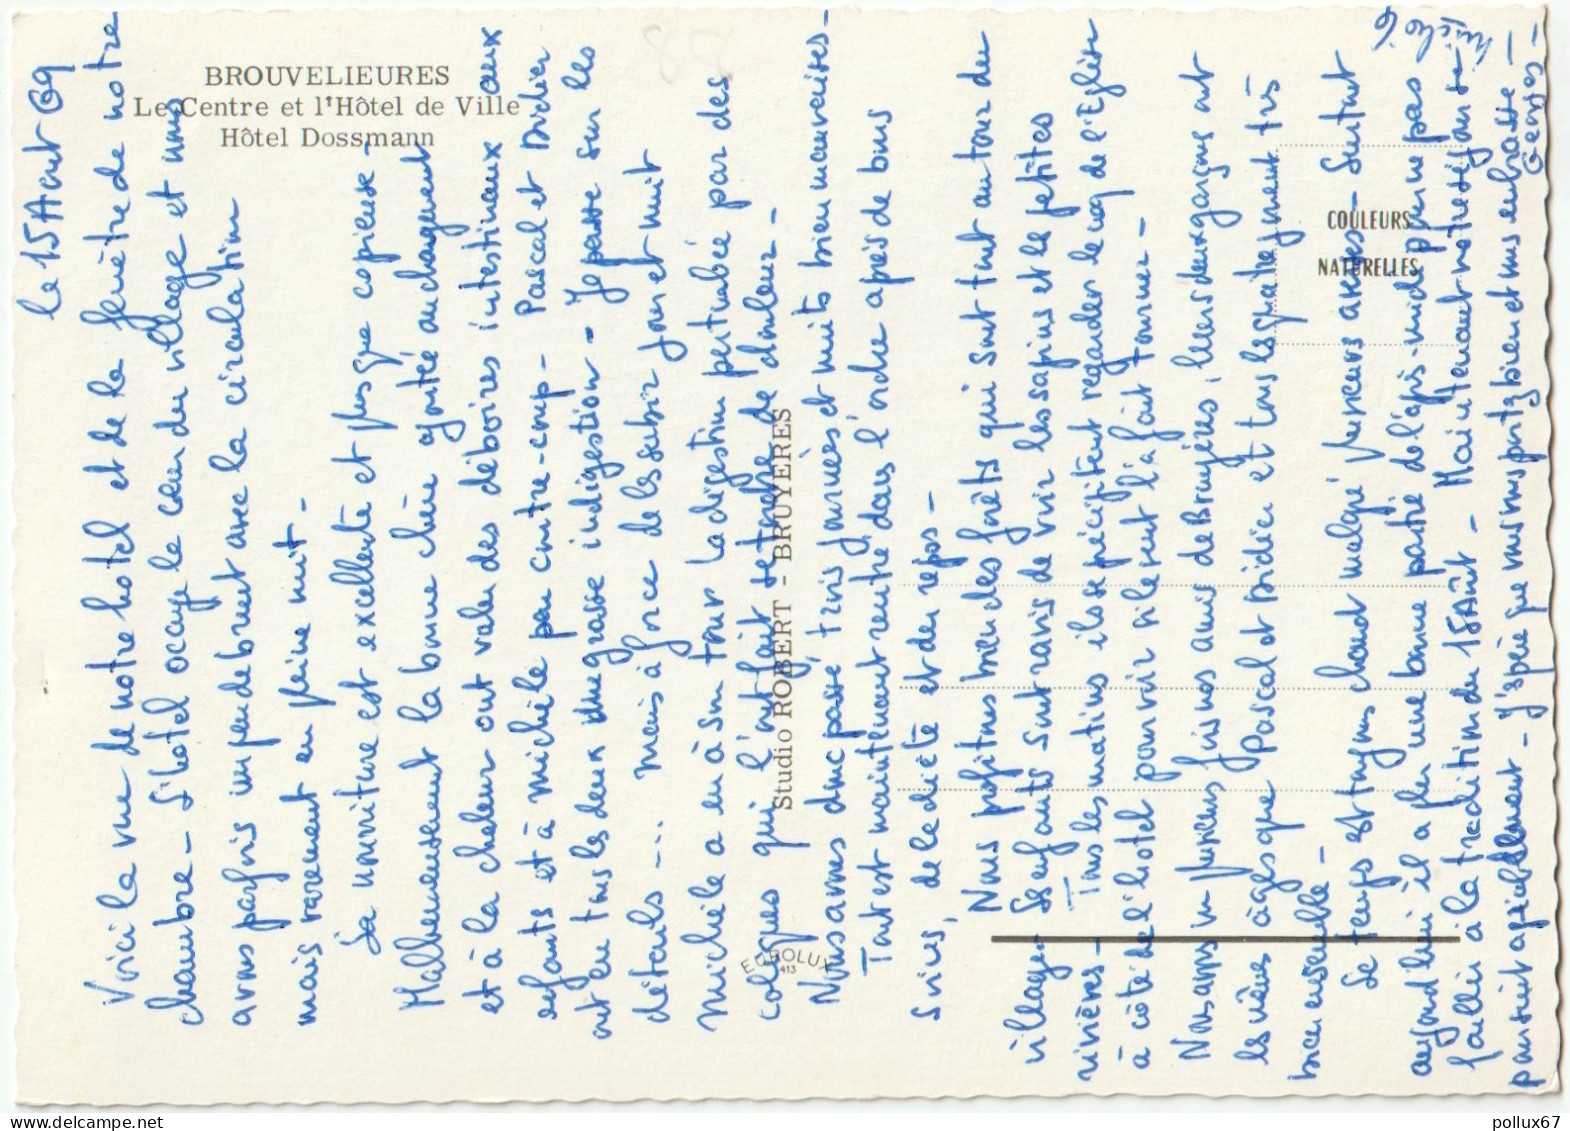 BROUVELIEURES
Le Centre et l'Hôtel de Ville
Hôtel Dossmann
COULEURS
NATURELLES
Studio ROBERT - BRUYERES
EUROLUX
413
le 15 Aout 69
Voici la vue de notre hotel et de la fenêtre de notre
chambre - L'hotel occupe le cœur du village et nous
avons parfois un peu de bruit avec la circulation
mais rarement en pleine nuit -
La nourriture est excellente et presque copieuse -
Malheureusement la bonne chère ajoutée au changement
et à la chaleur ont valu des déboires intestinaux aux
enfants et à Michèle par contre-coup - Pascal et Didier
ont eu tous les deux une grasse indigestion - Je passe sur les
détails -.. mais à force de les subir jour et nuit
Michèle a eu à son tour la digestion perturbée par des
coliques qui l'ont fait se tordre de douleur -
Nous avons donc passé trois journées et nuits bien mauvaises -
Tout est maintenant rentré dans l'ordre après de bons
soins, de la diète et du repos -
Nous profitons bien des forêts qui sont tout autour du
village - Les enfants sont ravis de voir les sapins et les petites
rivières - Tous les matins ils se précipitent regarder le coq de l'Eglise
à côté de l'hotel pour voir si le vent l'a fait tourner -
Nous avons vu plusieurs fois nos amis de Bruyères, leurs deux garçons ont
les mêmes âges que Pascal et Didier et tous les quatre jouent très
bien ensemble -
Le temps est toujours chaud malgré plusieurs averses - Surtout
aujourd'hui il a plu une bonne partie de l'après-midi pour ne pas
faillir à la tradition du 15 Aôut - Maintenant notre séjour se
poursuit agréablement - J'espère que vous vous portez bien et vous embrasse -
Georges -
Michèle